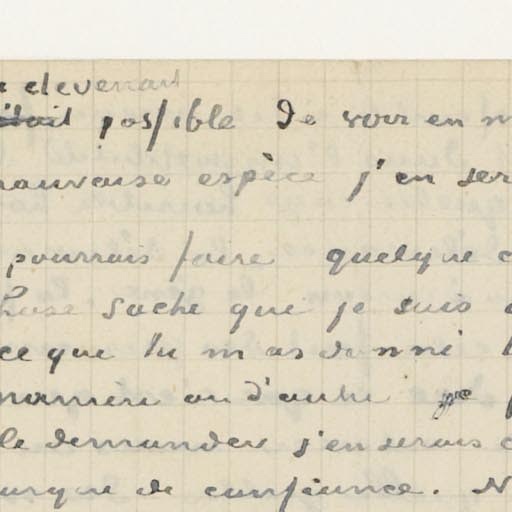 devenait
était possible de voir en
mauvaise espèce j'en ser
pourrais faire quelque c
chose sache que je suis
ce que tu m as donné
manière ou d'autre
le demander j'en serais
marque de confiance. N